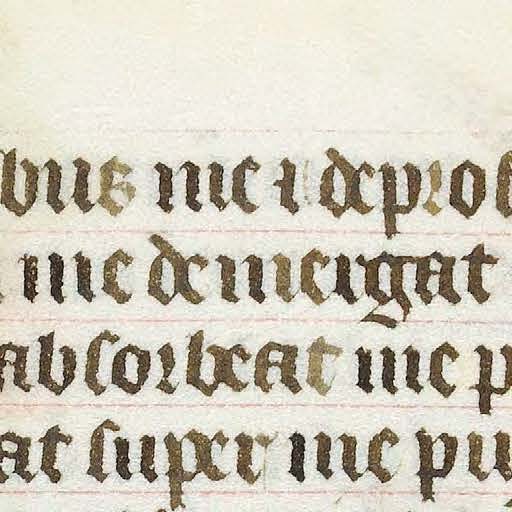 bus me ⁊ de pro
me demergat
absorbeat me p
at super me pu